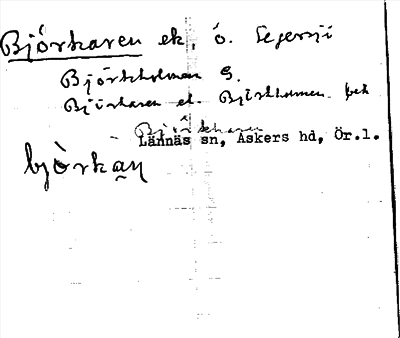 Björkaren ek, ö. Segersjö
Björkholmen G.
Björkaren el. Björkholmen
Björkharen
Lännäs sn, Askers hd, Ör.l.
björkan